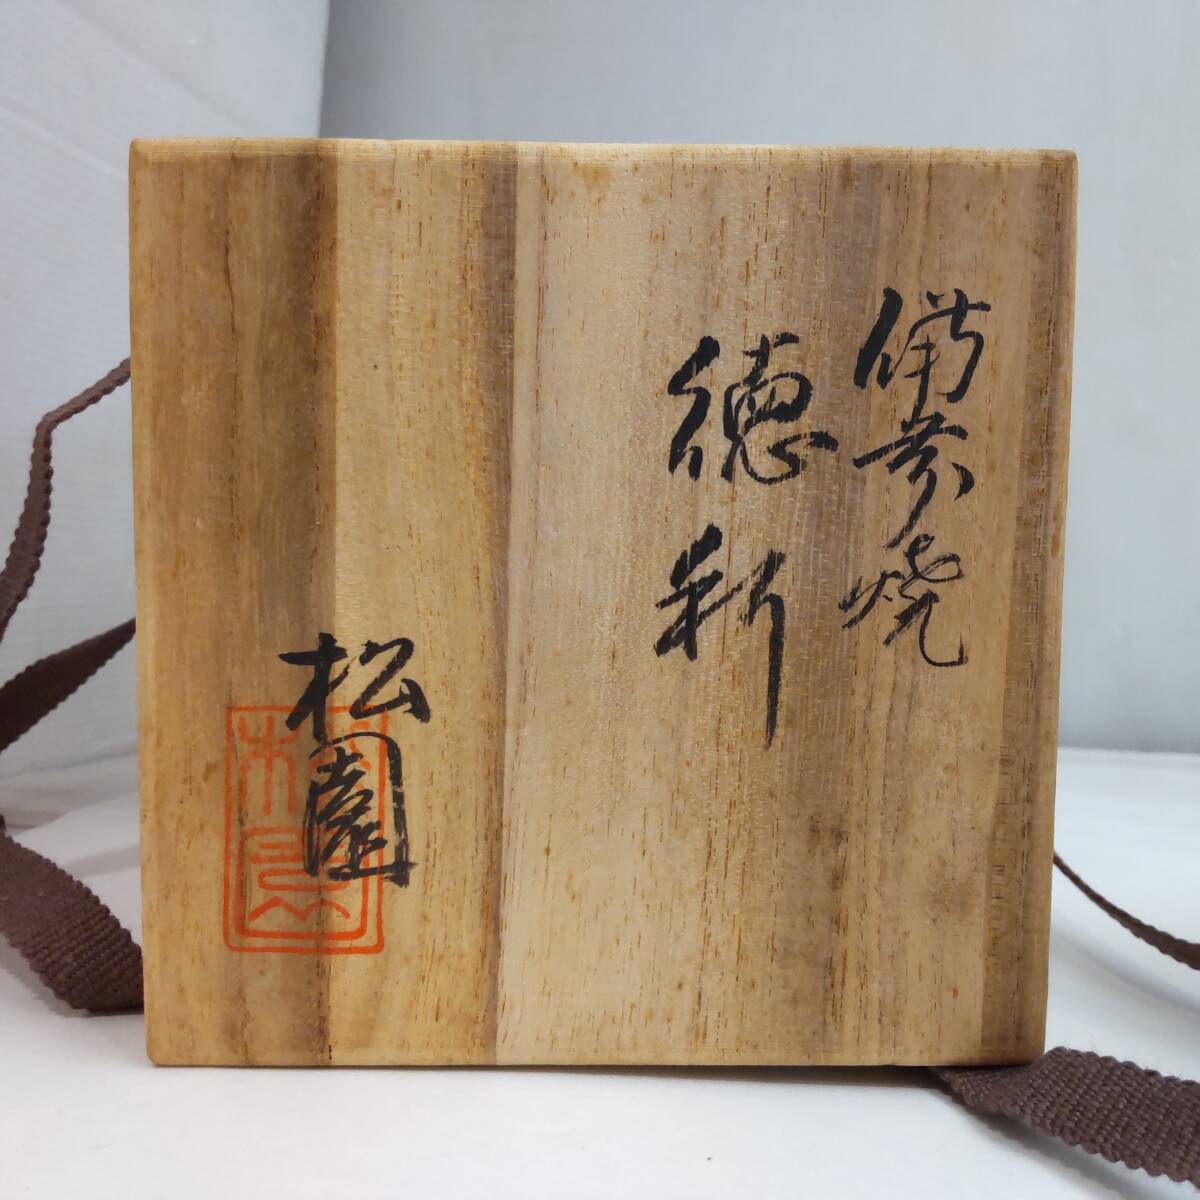 備前焼
徳利
松園